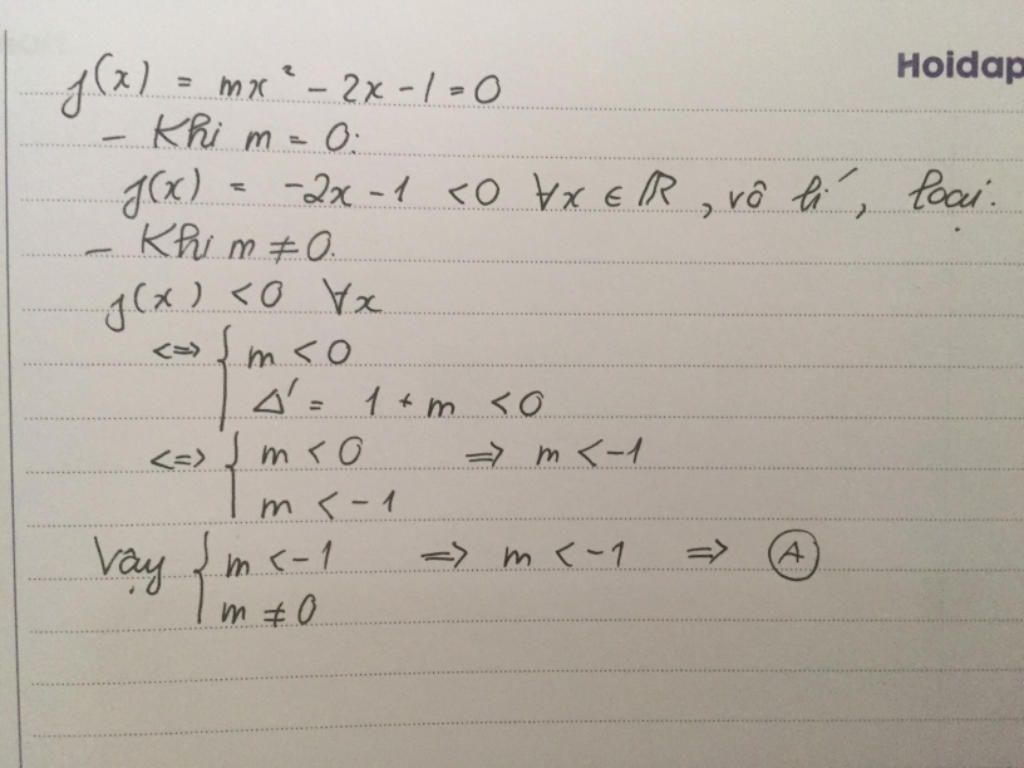 Hoidap
f(x) = mx² - 2x - 1 = 0
- Khi m = 0:
f(x) = -2x - 1 < 0 ∀x ∈ ℝ, vô lí, loại.
- Khi m ≠ 0.
f(x) < 0 ∀x
<=> { m < 0
Δ' = 1 + m < 0
<=> { m < 0 => m < -1
m < -1
Vậy { m < -1 => m < -1 => A
m ≠ 0